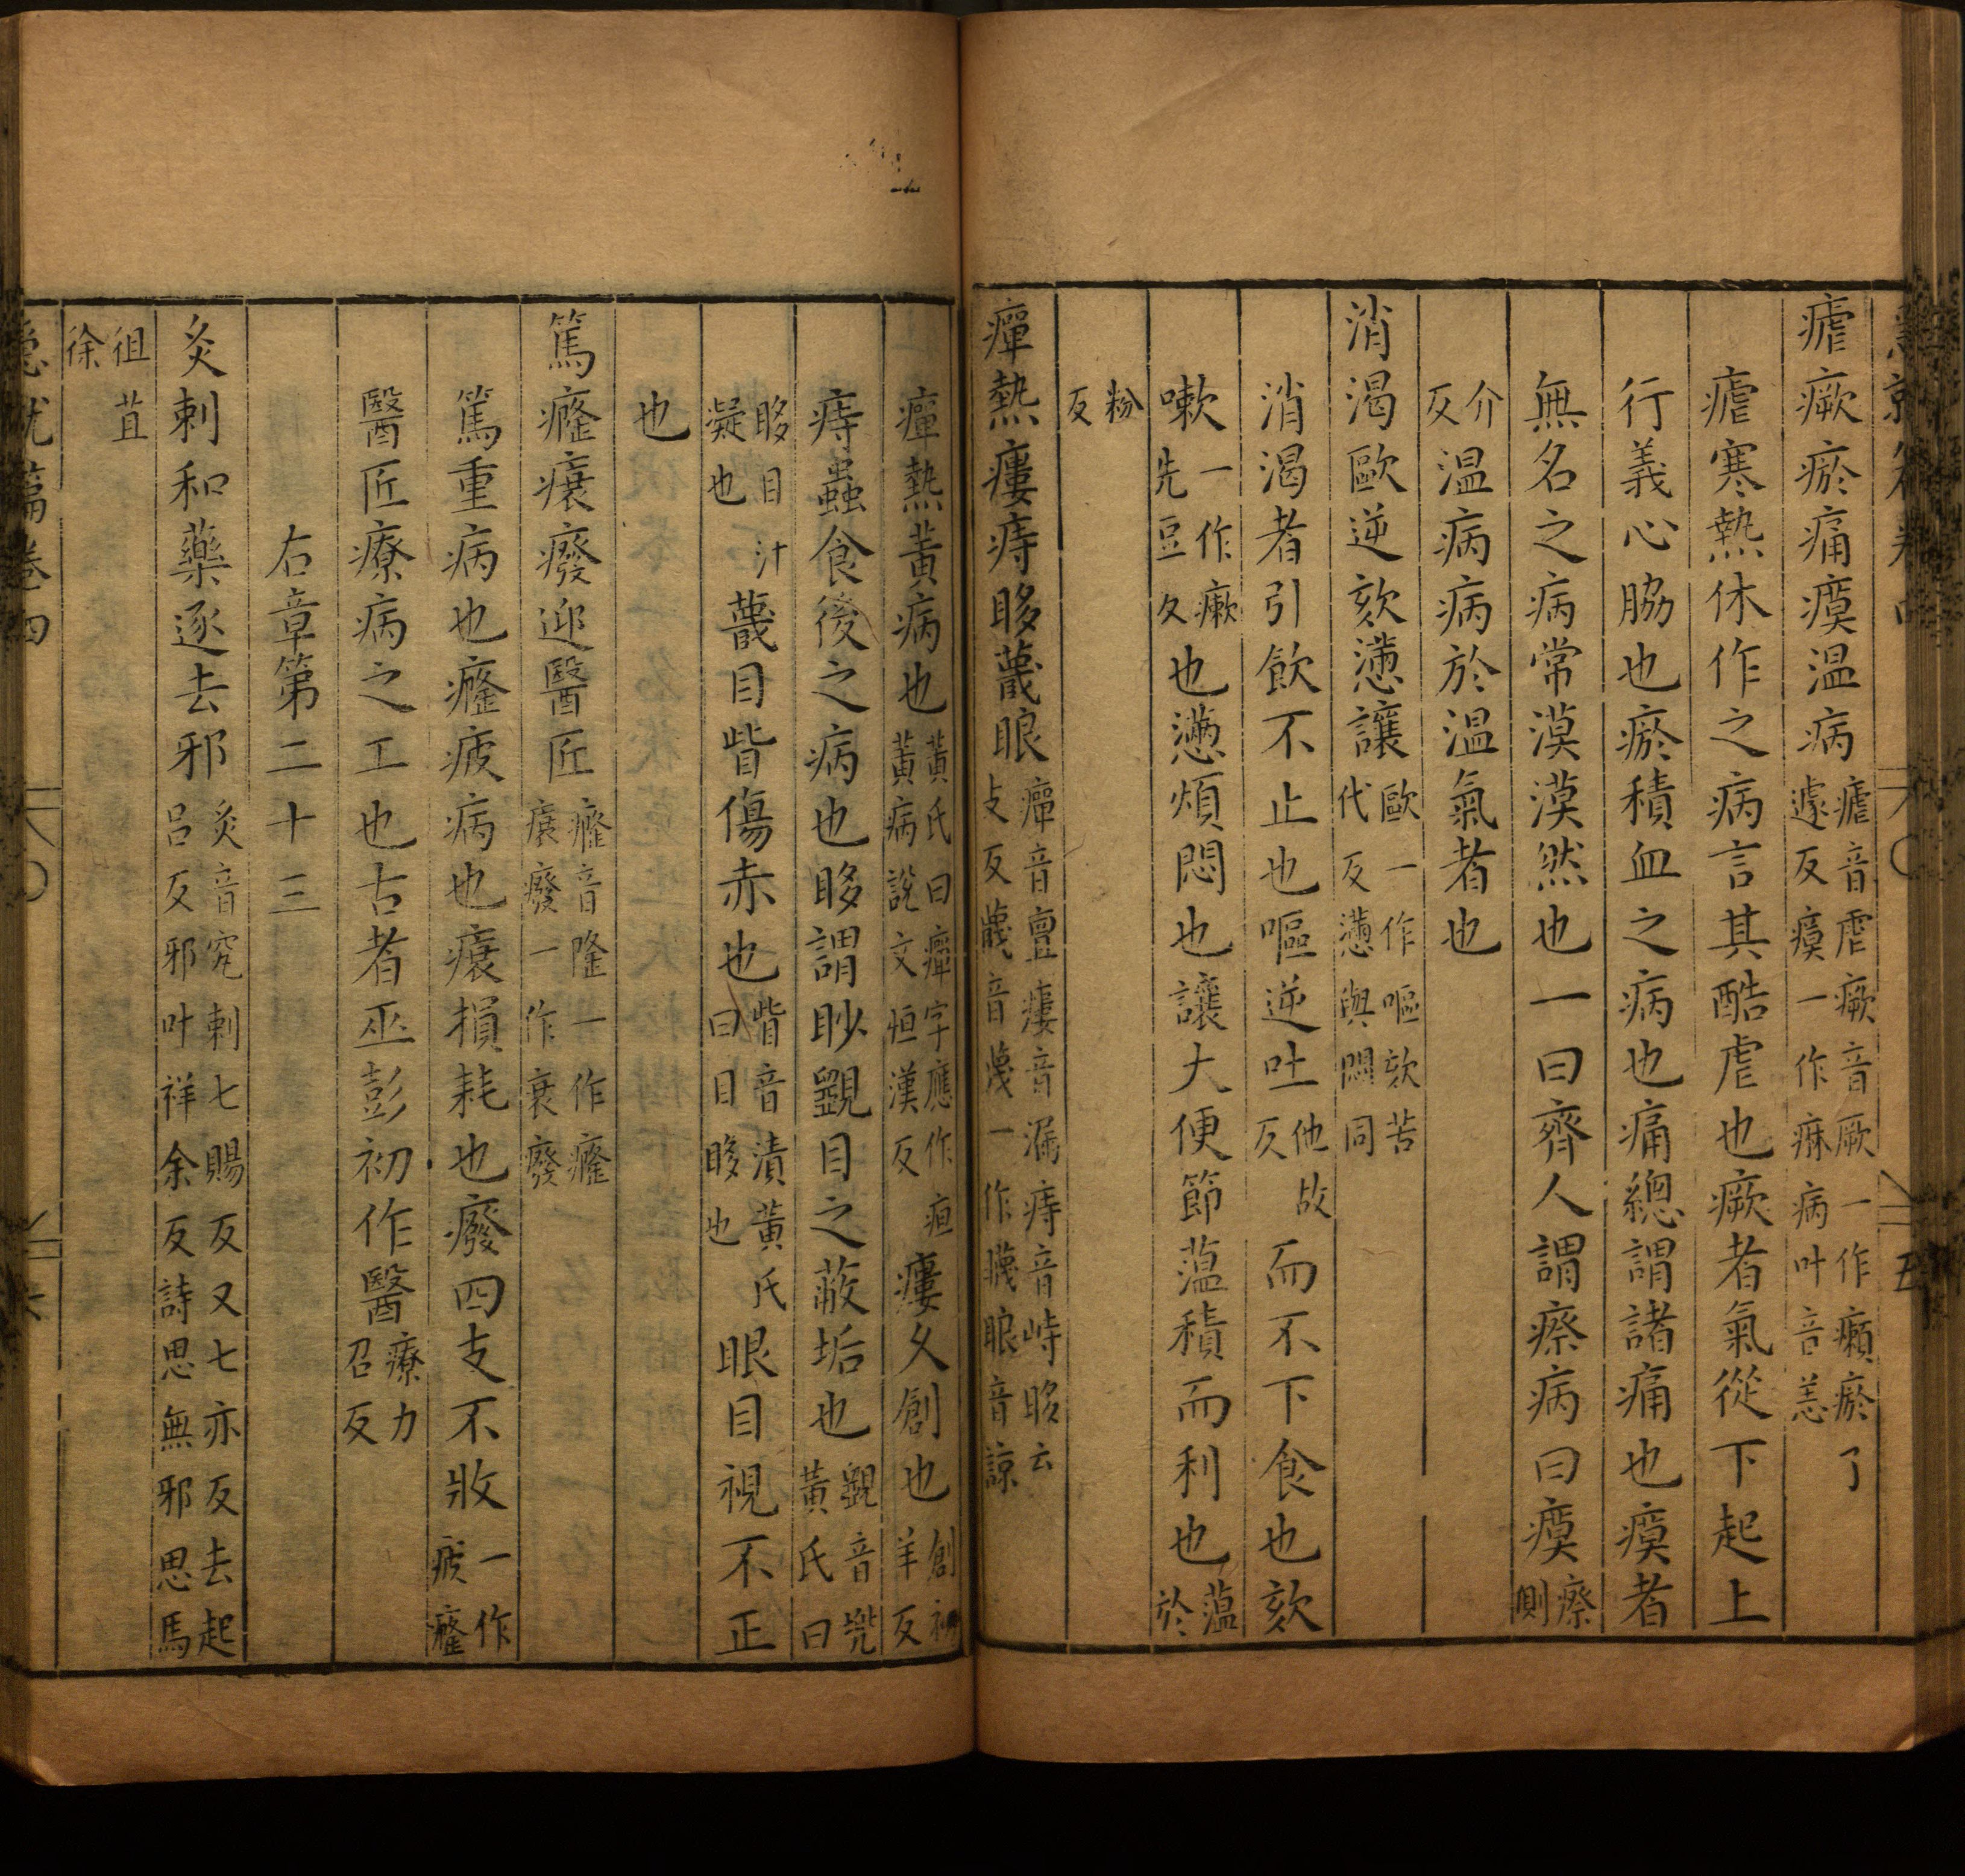 瘧瘚瘀痛瘼温病瘧音虐瘚音厥一作癩瘀了
遽反瘼一作痳病叶音恙
瘧寒熱休作之病言其酷虐也瘚者氣從下起上
行義心脇也瘀積血之病也痛總謂諸痛也瘼者
無名之病常漠漠然也一曰齊人謂瘵病曰瘼瘵
側
介
反温病病於温氣者也
消渴歐逆欬懣讓歐一作嘔欬苦
代反懣與悶同
消渴者引飲不止也嘔逆吐他故
反而不下食也欬
嗽一作瘷
先豆反也懣煩悶也讓大便節蕰積而利也蕰
於
粉
反
癉熱瘻痔眵䁾眼癉音亶瘻音漏痔音峙眵云
支反䁾音蔑一作䁾眼音諒
癉熱黄病也黄氏曰癉字應作疸
黄病說文恒漢反瘻久創也創初
羊反
痔蟲食後之病也眵謂眇覴目之蔽垢也覴音兠
黄氏曰
眵目汁
凝也䁾目眥傷赤也眥音漬黄氏
曰目眵也眼目視不正
也
篤癃㾮癈迎醫匠癃音隆一作癃
㾮癈一作衰癈
篤重病也癃疲病也㾮損耗也癈四支不收一作
疲癃
醫匠療病之工也古者巫彭初作醫療力
召反
右章第二十三
灸刺和藥逐去邪灸音究刺七賜反又七亦反去起
吕反邪叶祥余反詩思無邪思馬
徂
徐苴
急就篇卷四